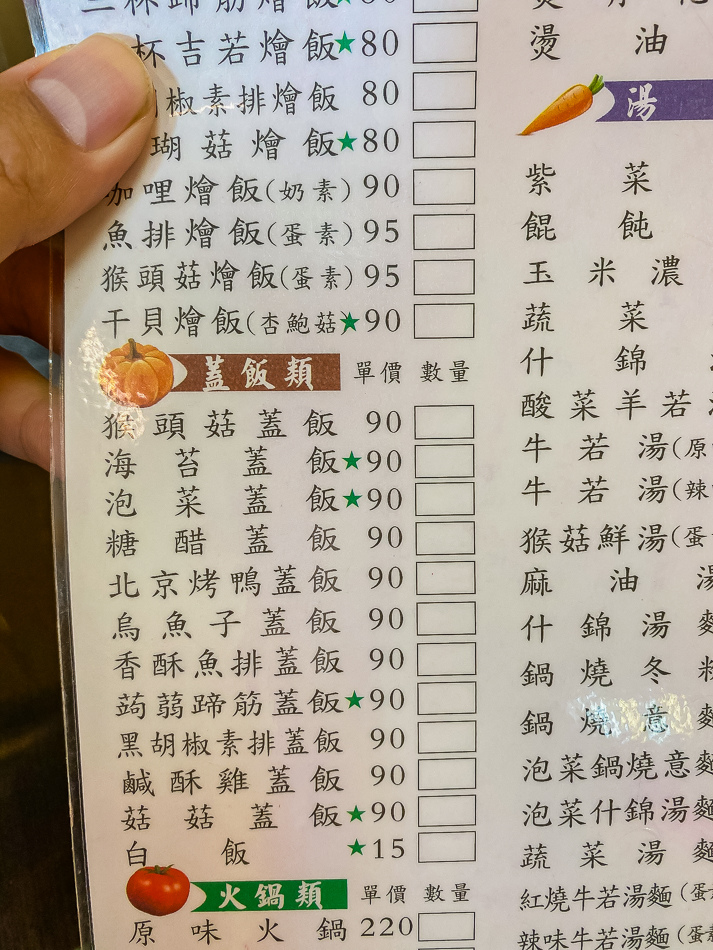 杯吉若燴飯★80
椒素排燴飯 80
瑚菇燴飯★80
咖哩燴飯(奶素) 90
魚排燴飯(蛋素) 95
猴頭菇燴飯(蛋素) 95
干貝燴飯(杏鮑菇)★90
蓋飯類 單價 數量
猴頭菇蓋飯 90
海苔蓋飯★90
泡菜蓋飯★90
糖醋蓋飯 90
北京烤鴨蓋飯 90
烏魚子蓋飯 90
香酥魚排蓋飯 90
蒟蒻蹄筋蓋飯★90
黑胡椒素排蓋飯 90
鹹酥雞蓋飯 90
菇菇蓋飯★90
白飯★15
火鍋類 單價 數量
原味火鍋 220
燙油
湯
紫菜
餛飩
玉米濃
蔬菜
什錦
酸菜羊若
牛若湯(原
牛若湯(辣
猴菇鮮湯(蛋
麻油湯
什錦湯麵
鍋燒冬粉
鍋燒意麵
泡菜鍋燒意麵
泡菜什錦湯麵
蔬菜湯麵
紅燒牛若湯麵(蛋
辣味牛若湯麵(蛋